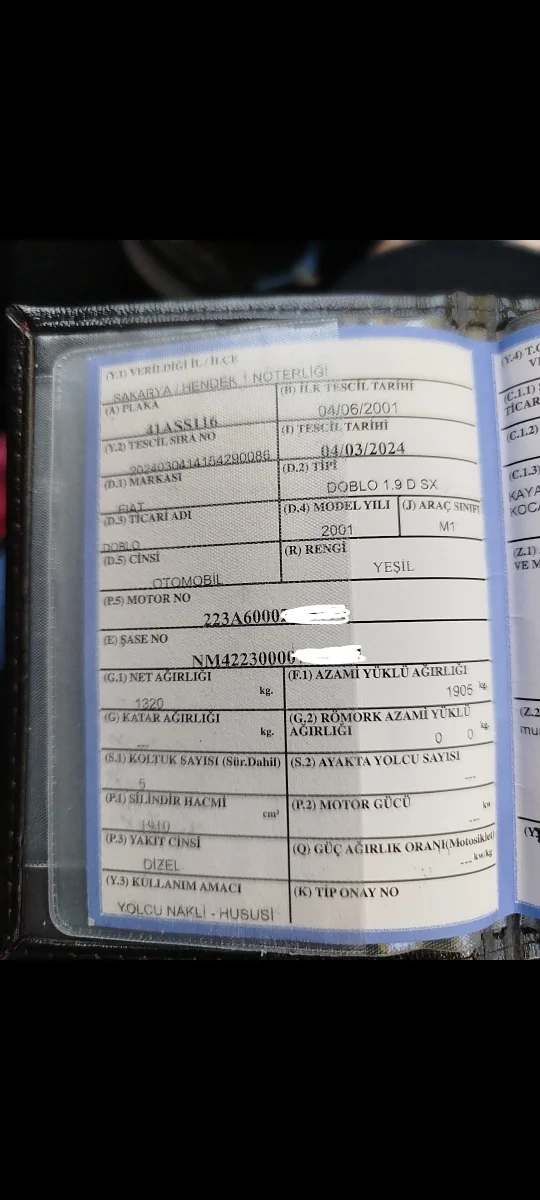 (Y.1) VERİLDİĞİ İL / İLÇE
SAKARYA / HENDEK 1 NOTERLİĞİ
(A) PLAKA
41ASS116
(B) İLK TESCİL TARİHİ
04/06/2001
(Y.2) TESCİL SIRA NO
2024030414154290086
(I) TESCİL TARİHİ
04/03/2024
(D.1) MARKASI
FIAT
(D.2) TİPİ
DOBLO 1.9 D SX
(D.3) TİCARİ ADI
DOBLO
(D.4) MODEL YILI
2001
(J) ARAÇ SINIFI
M1
(D.5) CİNSİ
OTOMOBİL
(R) RENGİ
YEŞİL
(P.5) MOTOR NO
223A6000
(E) ŞASE NO
NM42230000
(G.1) NET AĞIRLIĞI
1320 kg.
(F.1) AZAMİ YÜKLÜ AĞIRLIĞI
1905 kg.
(G) KATAR AĞIRLIĞI
--- kg.
(G.2) RÖMORK AZAMİ YÜKLÜ
AĞIRLIĞI
0 0 kg.
(S.1) KOLTUK SAYISI (Sür.Dahil)
5
(S.2) AYAKTA YOLCU SAYISI
---
(P.1) SİLİNDİR HACMİ
1910 cm³
(P.2) MOTOR GÜCÜ
--- kw
(P.3) YAKIT CİNSİ
DİZEL
(Q) GÜÇ AĞIRLIK ORANI(Motosiklet)
--- kw/kg
(Y.3) KULLANIM AMACI
YOLCU NAKLİ - HUSUSİ
(K) TİP ONAY NO
(Y.4) T.C
(C.1.1)
TİCAR
(C.1.2)
(C.1.3)
KAYA
KOCA
(Z.1)
VE M
(Z.2
mu